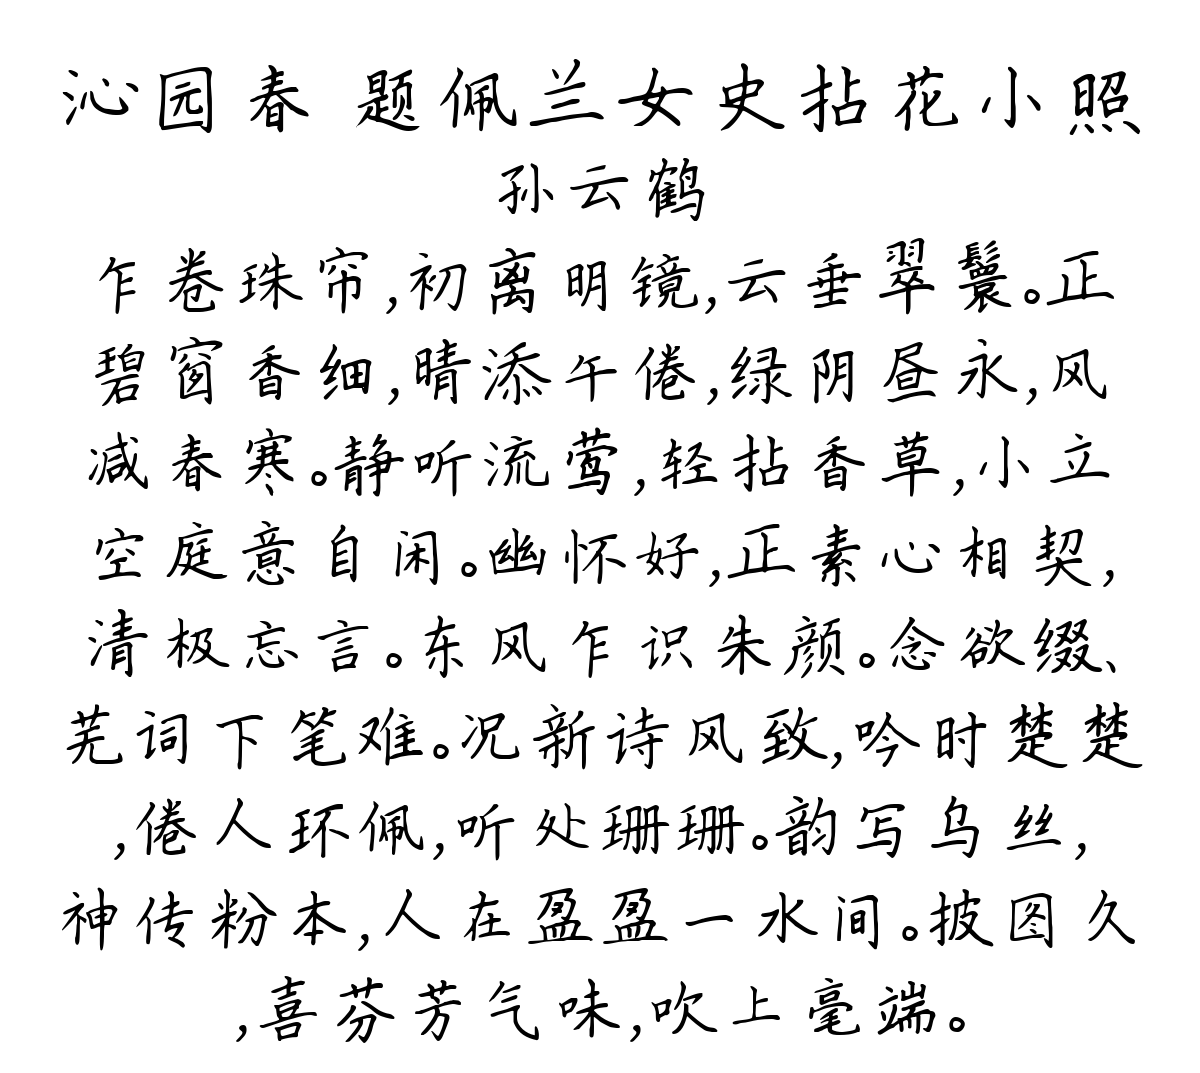 沁园春 题佩兰女史拈花小照
孙云鹤
乍卷珠帘,初离明镜,云垂翠鬟。正
碧窗香细,晴添午倦,绿阴昼永,风
减春寒。静听流莺,轻拈香草,小立
空庭意自闲。幽怀好,正素心相契,
清极忘言。东风乍识朱颜。念欲缀、
芜词下笔难。况新诗风致,吟时楚楚
,倦人环佩,听处珊珊。韵写乌丝,
神传粉本,人在盈盈一水间。披图久
,喜芬芳气味,吹上毫端。